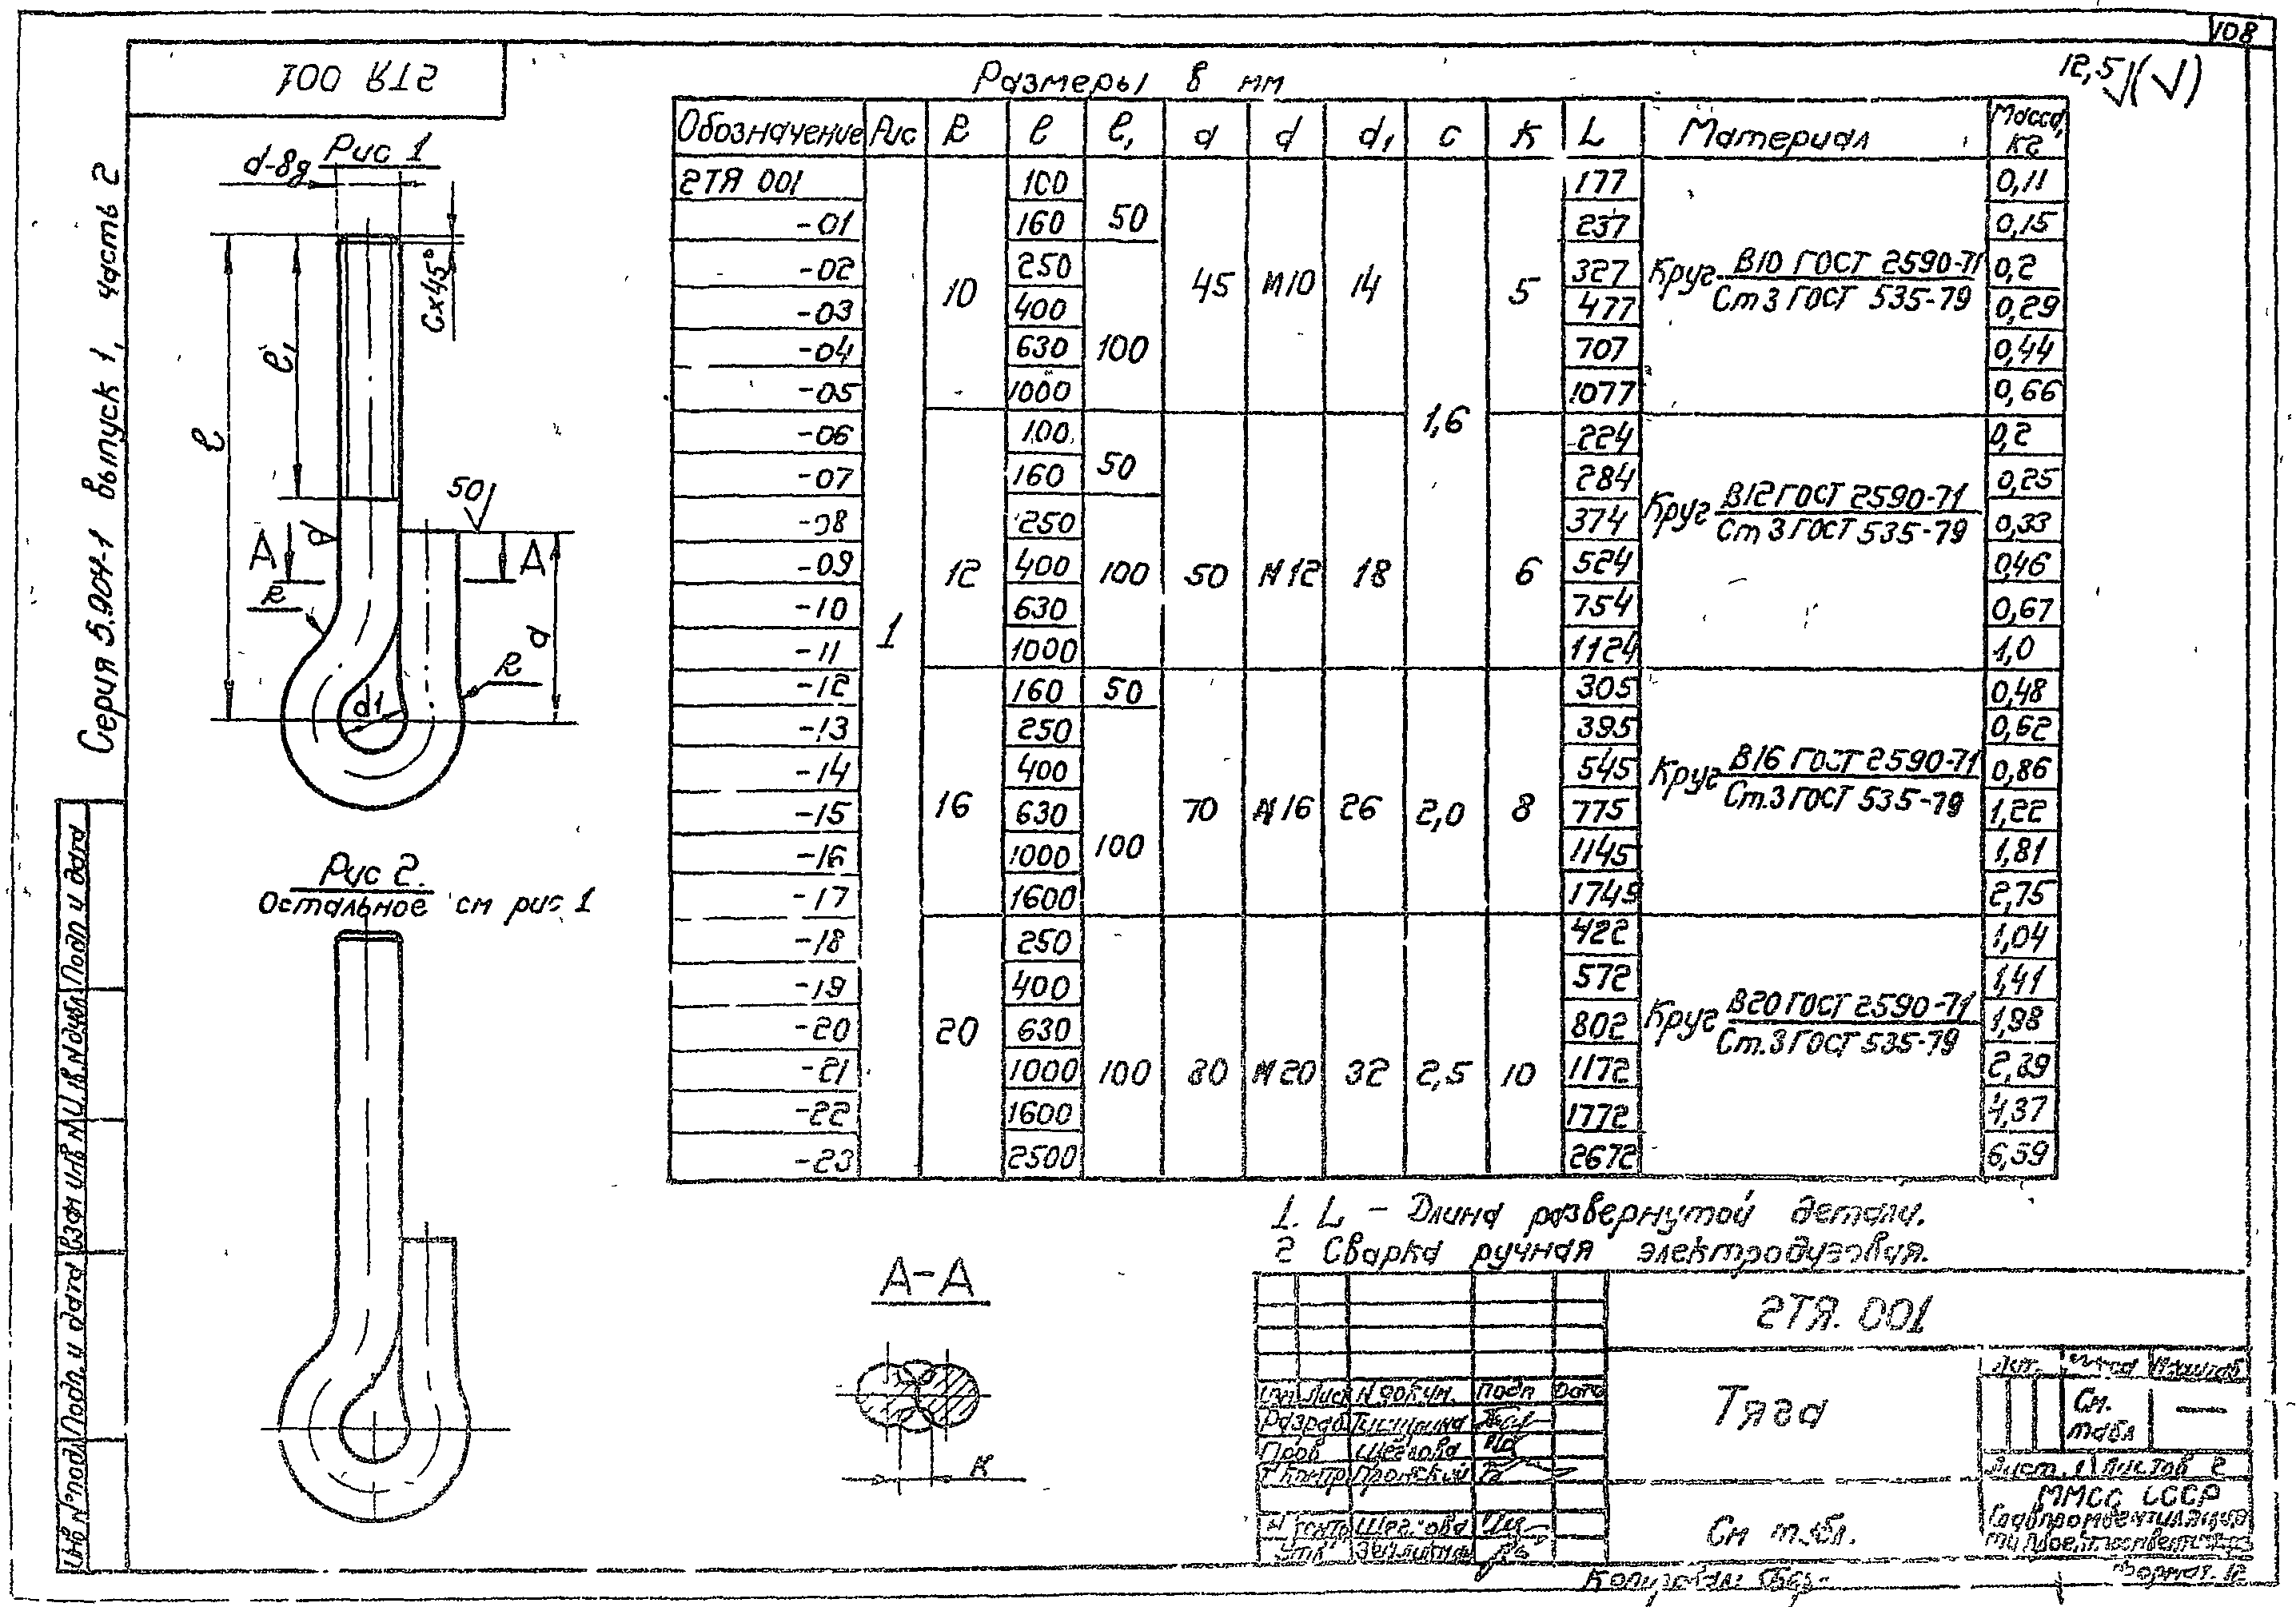 108
2ТЯ 001
12,5 (√)
Серия 5.904-1 выпуск 1, часть 2
Размеры в мм
Обозначение Рис R l l₁ а d d₁ c К L Материал Масса, кг
2ТЯ 001 1 10 100 50 45 М10 14 1,6 5 177 Круг В10 ГОСТ 2590-71 / Ст 3 ГОСТ 535-79 0,11
-01 160 237 0,15
-02 250 100 327 0,2
-03 400 477 0,29
-04 630 707 0,44
-05 1000 1077 0,66
-06 12 100 50 50 М12 18 6 224 Круг В12 ГОСТ 2590-71 / Ст 3 ГОСТ 535-79 0,2
-07 160 284 0,25
-08 250 100 374 0,33
-09 400 524 0,46
-10 630 754 0,67
-11 1000 1124 1,0
-12 16 160 50 70 М16 26 2,0 8 305 Круг В16 ГОСТ 2590-71 / Ст.3 ГОСТ 535-79 0,48
-13 250 100 395 0,62
-14 400 545 0,86
-15 630 775 1,22
-16 1000 1145 1,81
-17 1600 1745 2,75
-18 20 250 100 80 М20 32 2,5 10 422 Круг В20 ГОСТ 2590-71 / Ст.3 ГОСТ 535-79 1,04
-19 400 572 1,41
-20 630 802 1,98
-21 1000 1172 2,89
-22 1600 1772 4,37
-23 2500 2672 6,59
Рис 1
d-8g
c×45°
l₁
l
50
А А
d
R
а
R
d1
Рис 2.
Остальное см рис 1
А-А
К
1. L - Длина развернутой детали.
2 Сварка ручная электродуговая.
2ТЯ. 001
Тяга
См табл.
Лит. Масса Масштаб
См. табл —
Лист. 1 Листов 2
ММСС СССР
Изм Лист N докум. Подп Дата
Разраб
Пров Щеглова
Т контр Пронский
Н контр Щеглова
Утв
Копировал
Формат. 12
Инв N° подл Подп. и дата Взам инв N Инв N дубл. Подп и дата